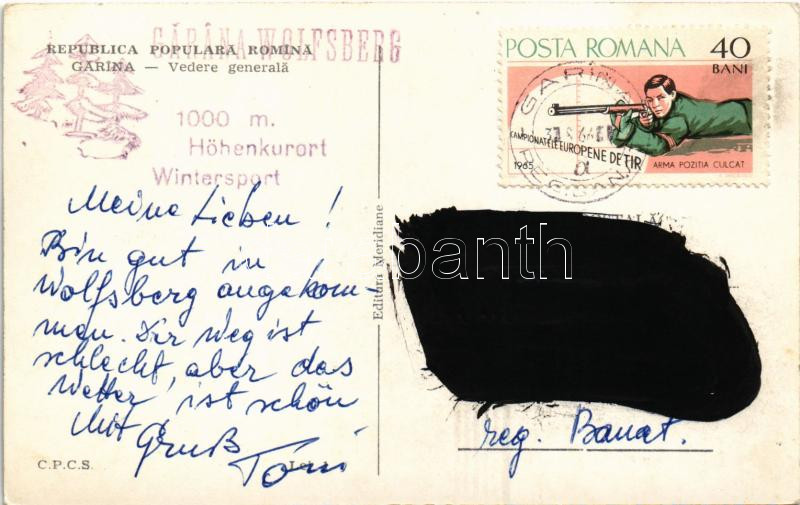 GĂRÂNA WOLFSBERG
REPUBLICA POPULARĂ ROMÎNĂ
GĂRINA — Vedere generală
1000 m.
Höhenkurort
Wintersport
Meine Lieben!
Bin gut in
Wolfsberg angekom-
men. Der Weg ist
schlecht, aber das
Wetter, ist schön
Mit Gruß
Toni
C.P.C.S.
Editura Meridiane
POSTA ROMANA 40
BANI
CAMPIONATELE EUROPENE DE TIR
1965 ARMA POZITIA CULCAT
reg. Banat.
banth